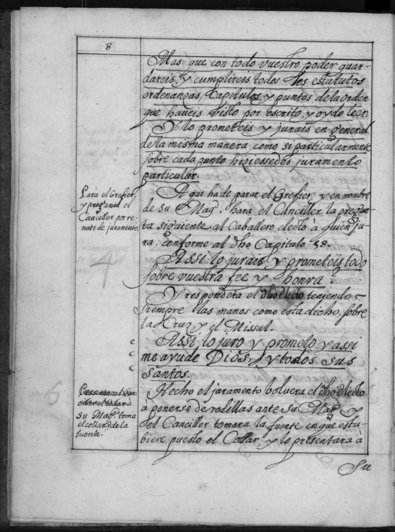 8
Mas: que con todo vuestro poder guar-
dareis, y cumplireis todos los estatutos
ordenanças, Capitulos y puntos de la orden
que haveis visto por escrito, y oydo leer.
Y lo prometeis y jurais en general
de la mesma manera, como si particularmente
sobre cada punto hiziessedes juramento
particular.
Para el Grefier,
y pregunta el
Canciller por re-
mate de juramento.
Aqui ha de parar el Grefier, y en nombre
de su Magd. hara el Canciller la pregun-
ta siguiente al Caballero electo à quien ju-
ra, conforme al dho Capitulo 58.
Assi lo jurais, y prometeis todo
sobre vuestra fee y honra.
Y respondera el dho electo teniendo
siempre las manos como esta dicho sobre
la Cruz y el Missal.
Assi lo juro y prometo y assi
me ayude Dios, y todos sus
Santos.
su Magd. toma
el collar de la
fuente.
Hecho el juramento bolvera el dho electo
a ponerse de rodillas ante su Magd. Y
el Canciller tomara la fuente en que estu-
biere puesto el Collar, y lo presentará à
Su